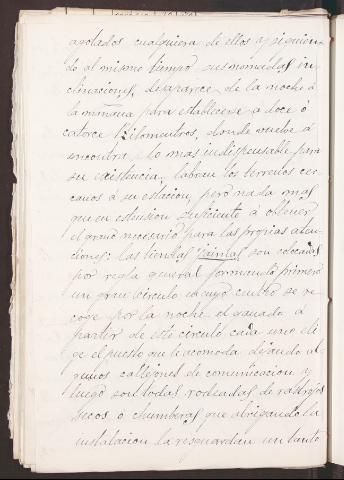 agotados cualquiera de ellos y siguien-
do al mismo tiempo sus nomadas in
clinaciones, desaparce de la noche á
la mañana para establecerse a doce ó
catorce Kilomentros, donde vuelve á
encontra lo mas indispensable para
su existencia. labran los terrenos cer
canos á su estacion, pero nada mas
que en estension suficiente á obtener
el grano necesario para las propias aten-
ciones: las tiendas jaimas son colocadas
por regla general formando primero
un gran circulo en cuyo centro se re
coge por la noche el ganado á
partir de este circulo cada uno eli
ge el puesto que le acomoda dejando al
gunos callejones de comunicacion y
luego son todas rodeadas de rastrojos
secos ó chumberas que abrigando la
instalacion la resguardan un tanto